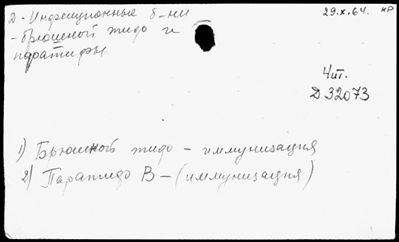 Д - Инфекционные б-ни
29.X.64. кр
- брюшной тифо и
паратифы
Чит.
Д 32073
1) Брюшной тифо - иммунизация
2) Паратифо В - (иммунизация)